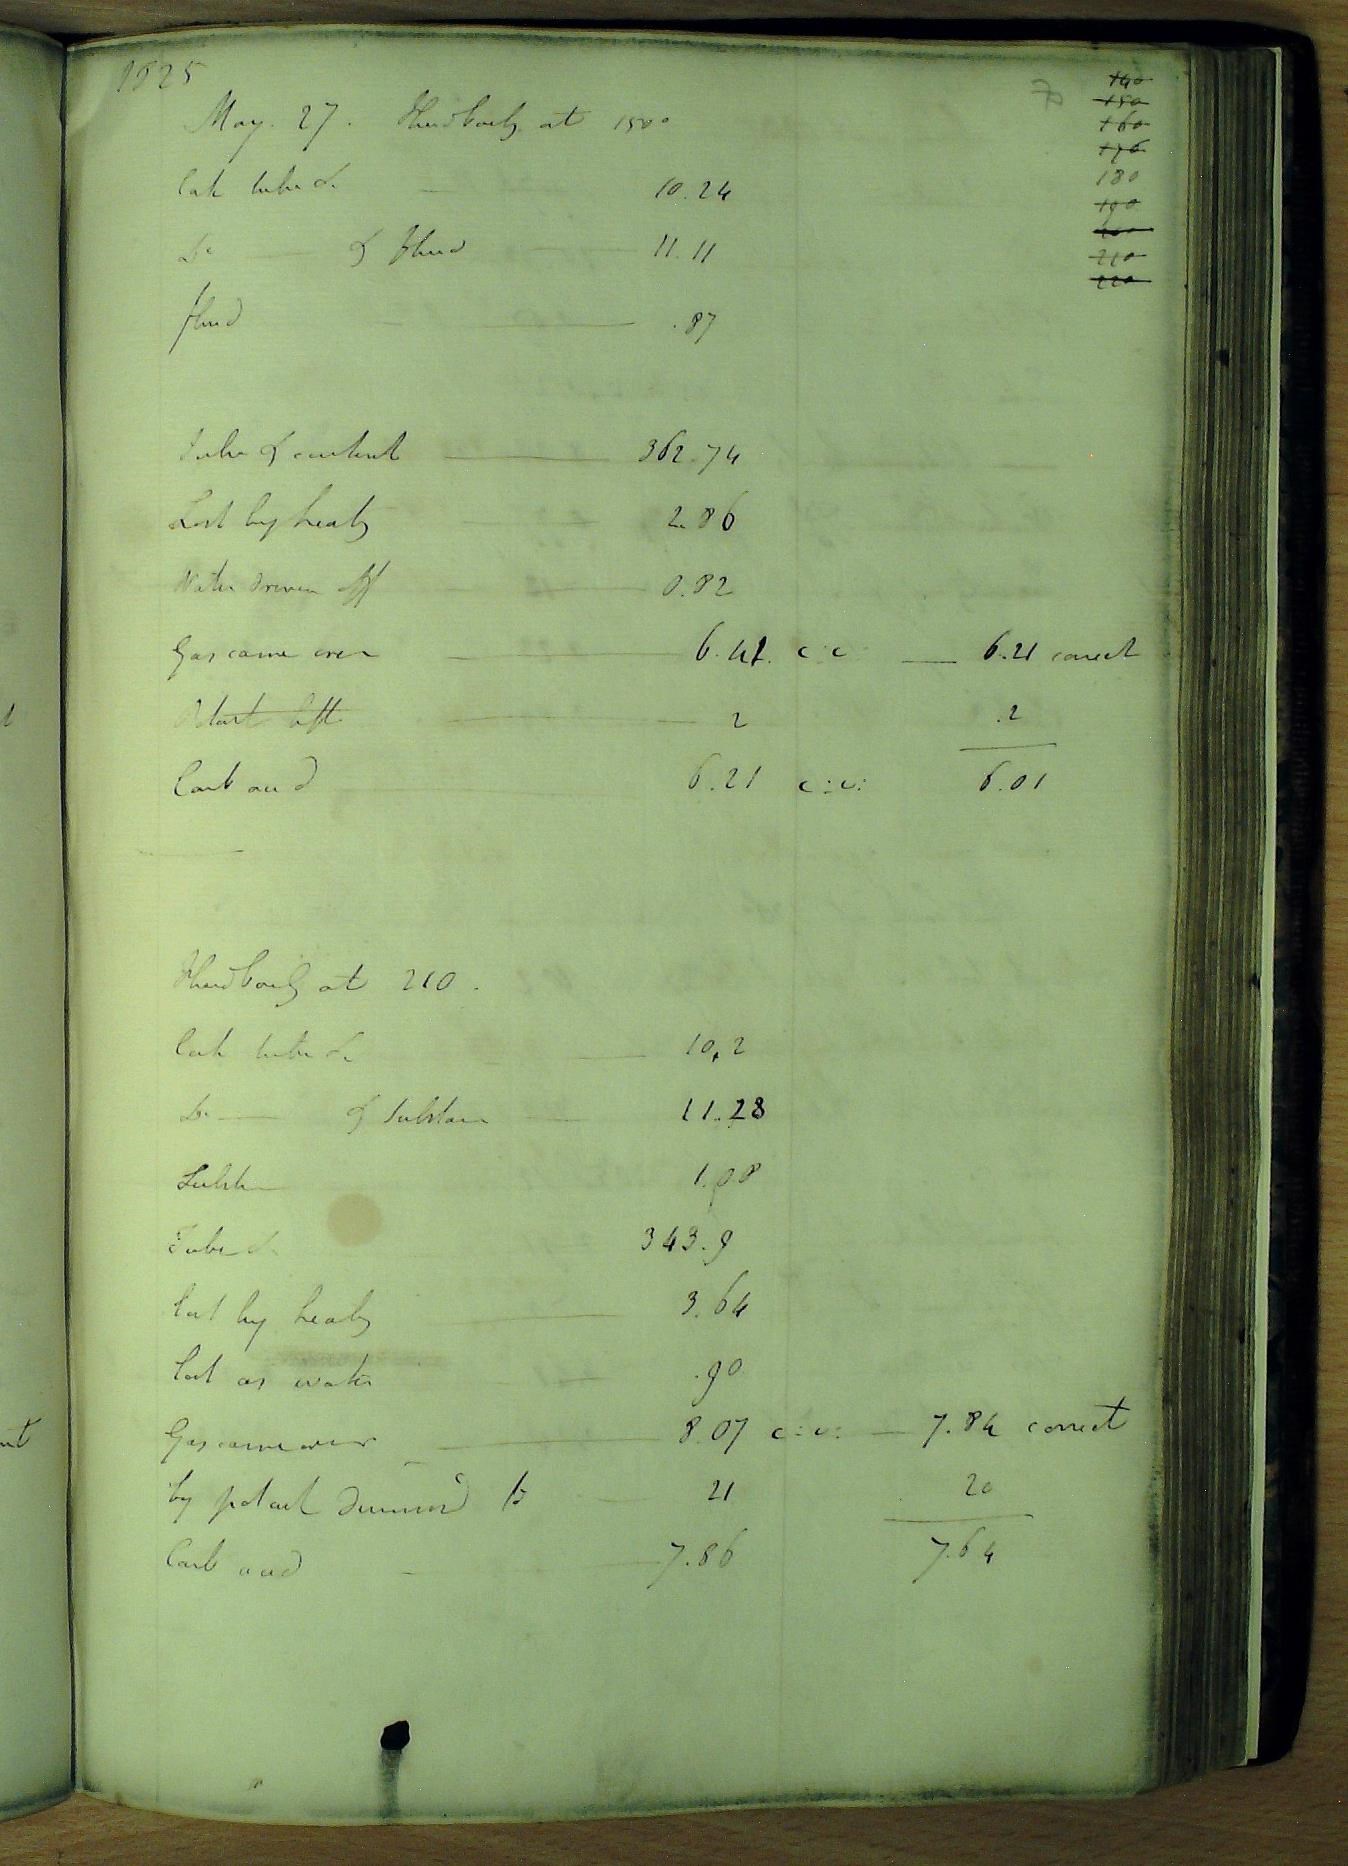 1825
140
150
160
170
180
190
200
210
220
May. 27. Fluid boilg at 150°
Cat tube &c 10.24
Do of fluid 11.11
fluid .87
Tube & contents 362.74
Lost by heatg 2.86
Water driven off 0.82
Gas came over 6.41 c:c: 6.21 correct
Potash left 2 .2
Carb acid 6.21 c:c: 6.01
Fluid boilg at 210.
tube &c 10.2
Do of substance 11.28
Substance 1.08
Tube &c 343.9
Lost by heatg 3.64
Lost as water .90
Gas came over 8.07 c:c: 7.84 correct
by potash diminisd to 21 20
Carb acid 7.86 7.64